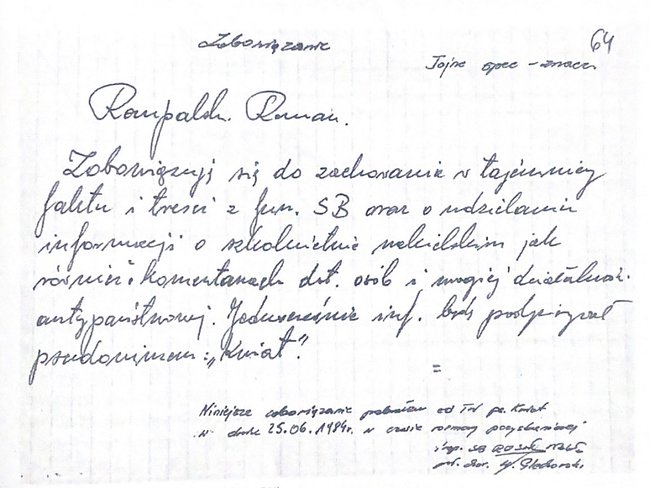 Zobowiązanie
64
Tajne spec - znacz
Roman.
Zobowiązuję się do zachowania w tajemnicy
faktu i treści z fun. SB oraz o udzielaniu
informacji o szkolnictwie nakielskim jak
również i komentarzach dot. osób i wrogiej działalnoś.
antypaństwowej. Jednocześnie inf. będę podpisywał
pseudonimem: „Kwiat".
=
Niniejsze zobowiązanie pobrałem od TW ps. Kwiat
w dniu 25.06.1984r. w czasie rozmowy pozyskaniowej
insp. SB